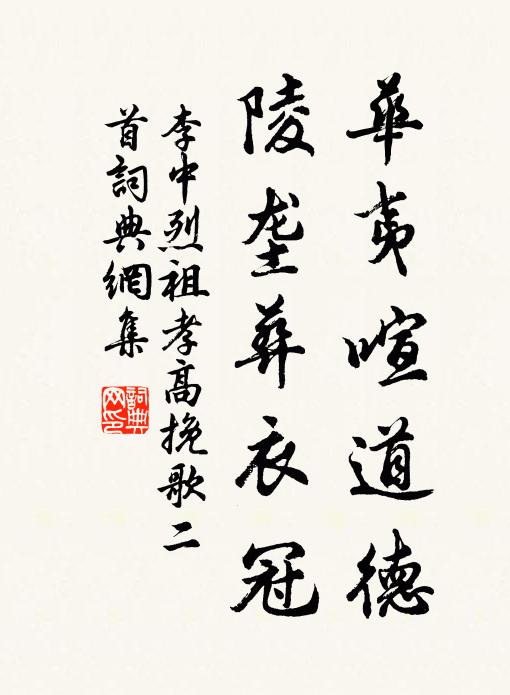 華夷喧道德
陵垄葬衣冠
李中烈祖孝高挽歌二
首詞典網集
詞典网印